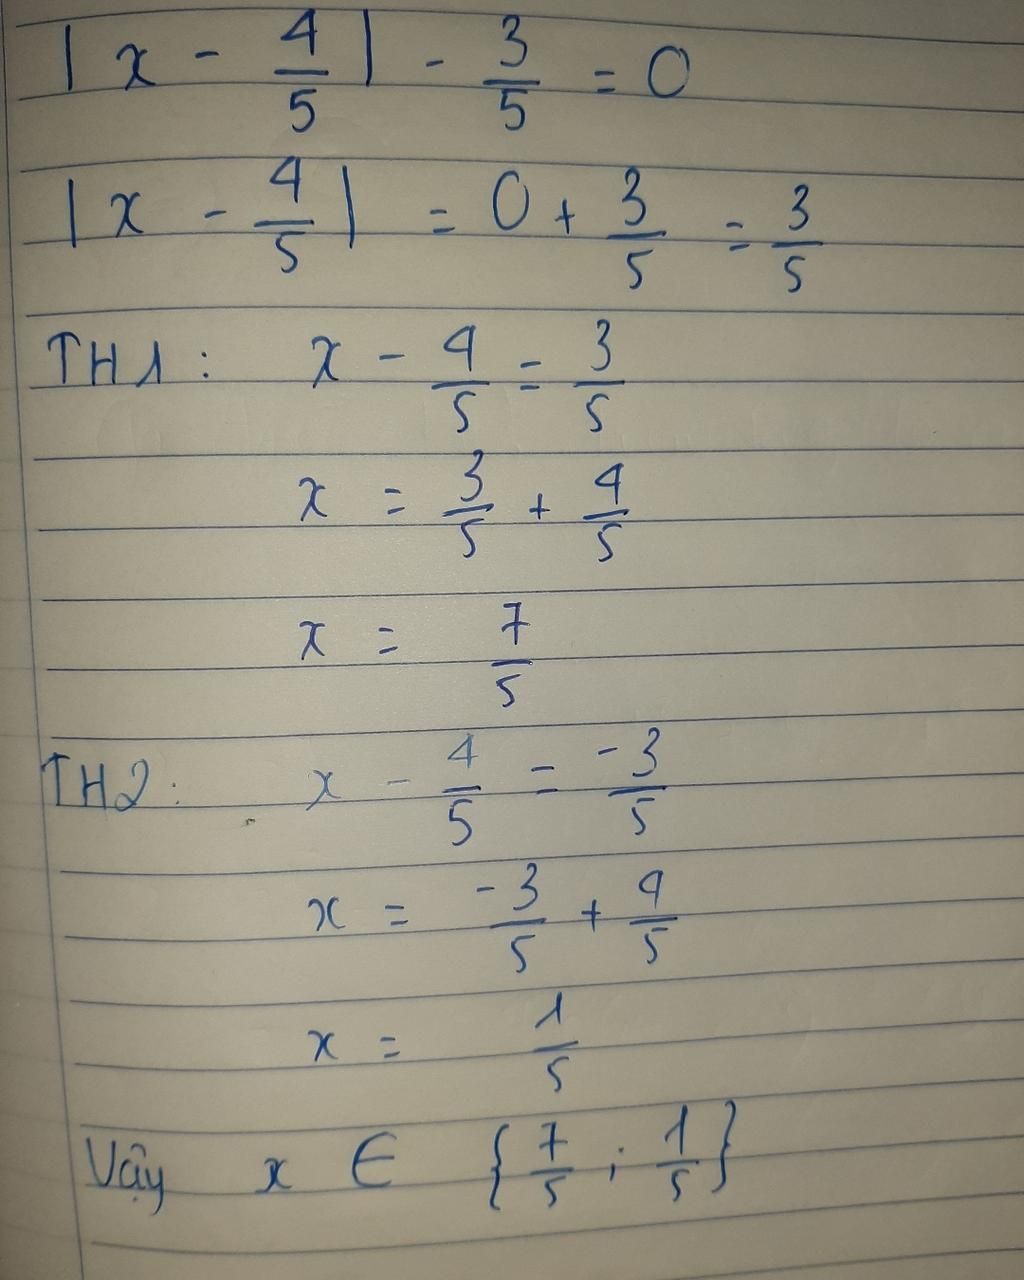 | x - 4/5 | - 3/5 = 0
| x - 4/5 | = 0 + 3/5 = 3/5
TH1: x - 4/5 = 3/5
x = 3/5 + 4/5
x = 7/5
TH2: x - 4/5 = -3/5
x = -3/5 + 4/5
x = 1/5
Vậy x ∈ {7/5 ; 1/5}